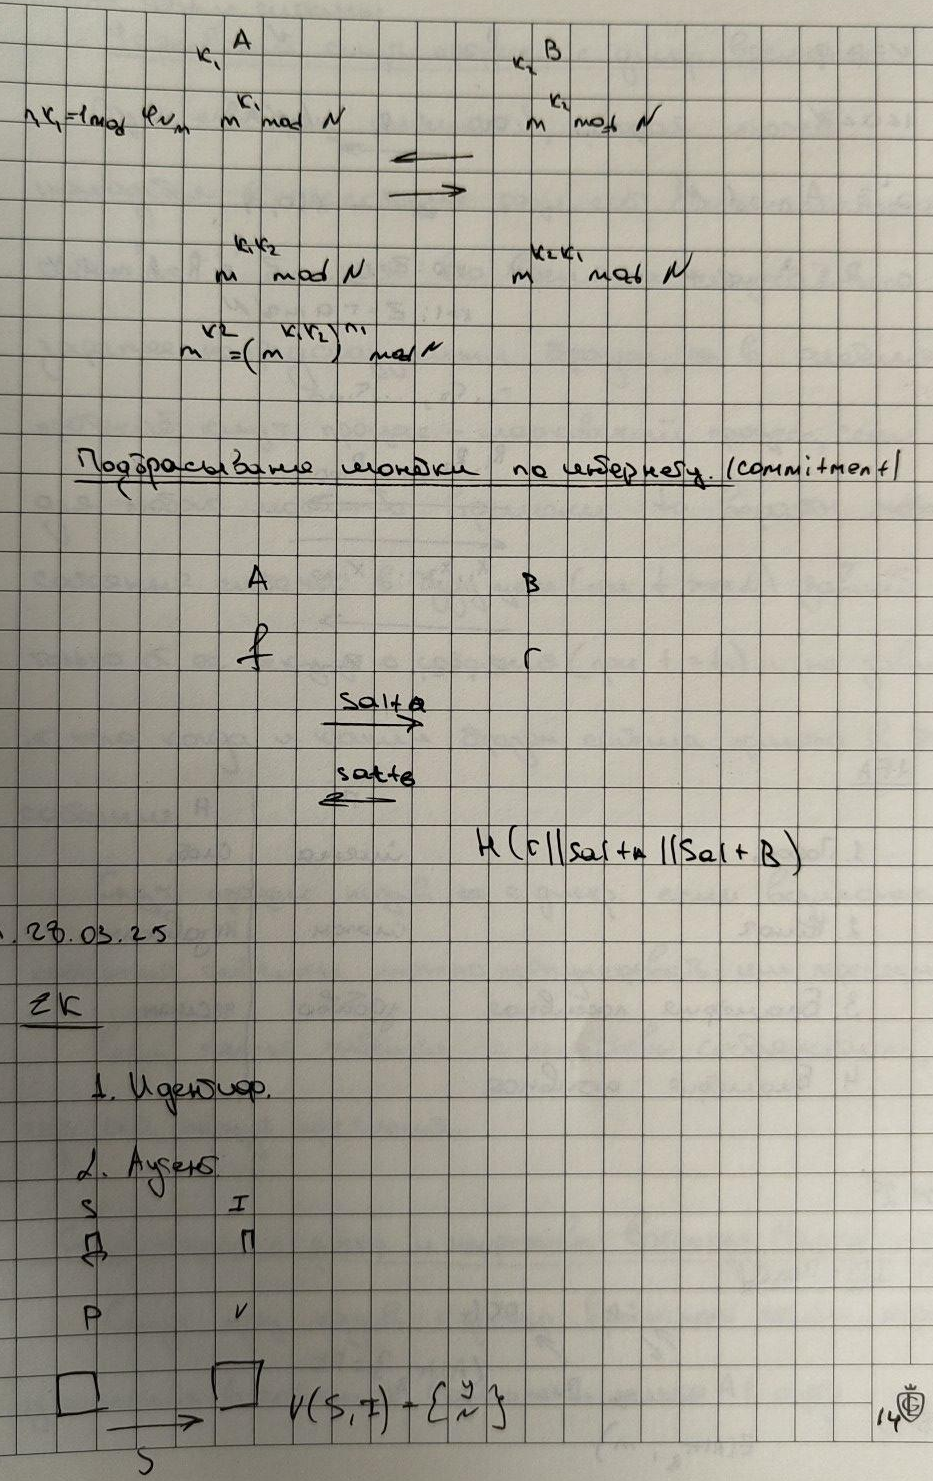 A B
K₁ K₂
n₁K₁=1 mod φN m^K₁ mod N m^K₂ mod N
m^K₁K₂ mod N m^K₂K₁ mod N
m^K2=(m^K₁K₂)^n₁ mod N
Подбрасывание монетки по интернету. (commitment)
A B
f r
salt a
salt B
H(r||salt A||Salt B)
28.03.25
ZK
1. Идентиф.
2. Аутент.
S I
Д П
P V
V(S,I) - {y/N}
S
14